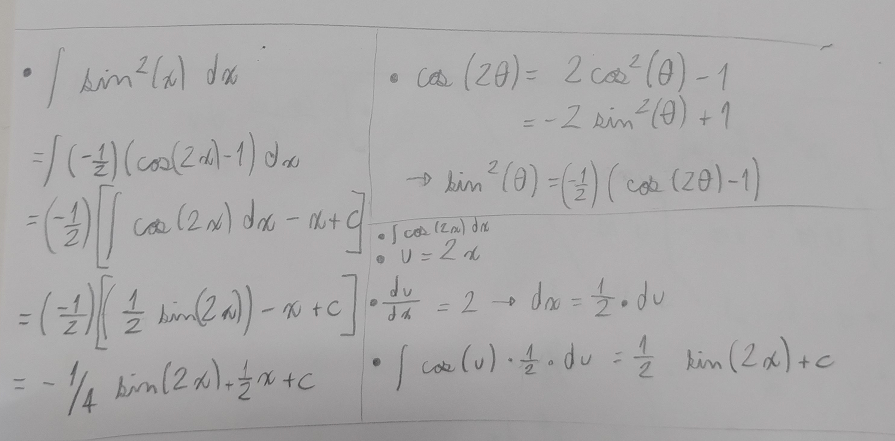 • ∫ sin²(x) dx
= ∫ (-1/2)(cos(2x)-1) dx
= (-1/2)[∫ cos(2x) dx - x+c]
= (-1/2)[(1/2 sin(2x)) - x + c]
= -1/4 sin(2x) + 1/2 x + c
• cos(2θ) = 2cos²(θ) - 1
= -2 sin²(θ) + 1
→ sin²(θ) = (-1/2)(cos(2θ)-1)
• ∫ cos(2x) dx
• u = 2x
• du/dx = 2 → dx = 1/2 • du
• ∫ cos(u) • 1/2 • du = 1/2 sin(2x) + c